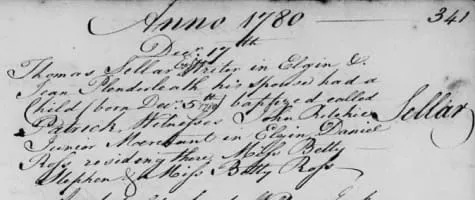 Anno 1780 341
Decr. 17th
Thomas Sellar Writer in Elgin &
Jean Plenderleath his Spouse had a
Child (born Decr. 5th) baptized called
Patrick, Witnesses John Ritchie Sellar
Junior Merchant in Elgin, Daniel
Ross residing there Miss Betty
Stephen & Miss Betty Ross